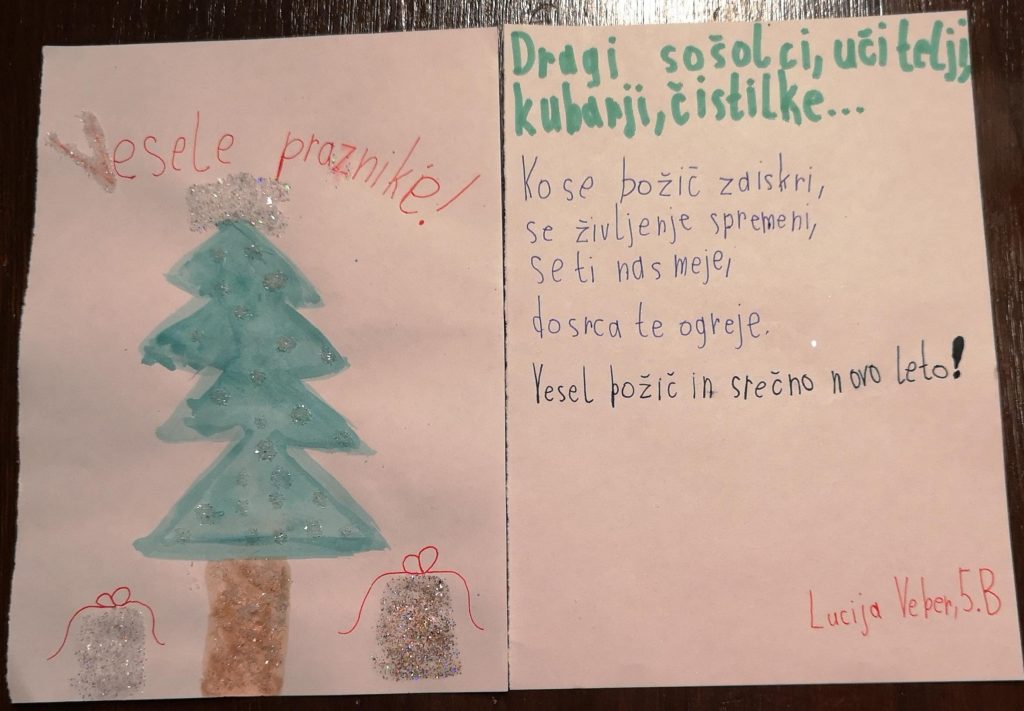 Vesele praznike!
Dragi sošolci, učitelji,
kuharji, čistilke...
Ko se božič zaiskri,
se življenje spremeni,
se ti nasmeje,
do srca te ogreje.
Vesel božič in srečno novo leto!
Lucija Veber, 5.B